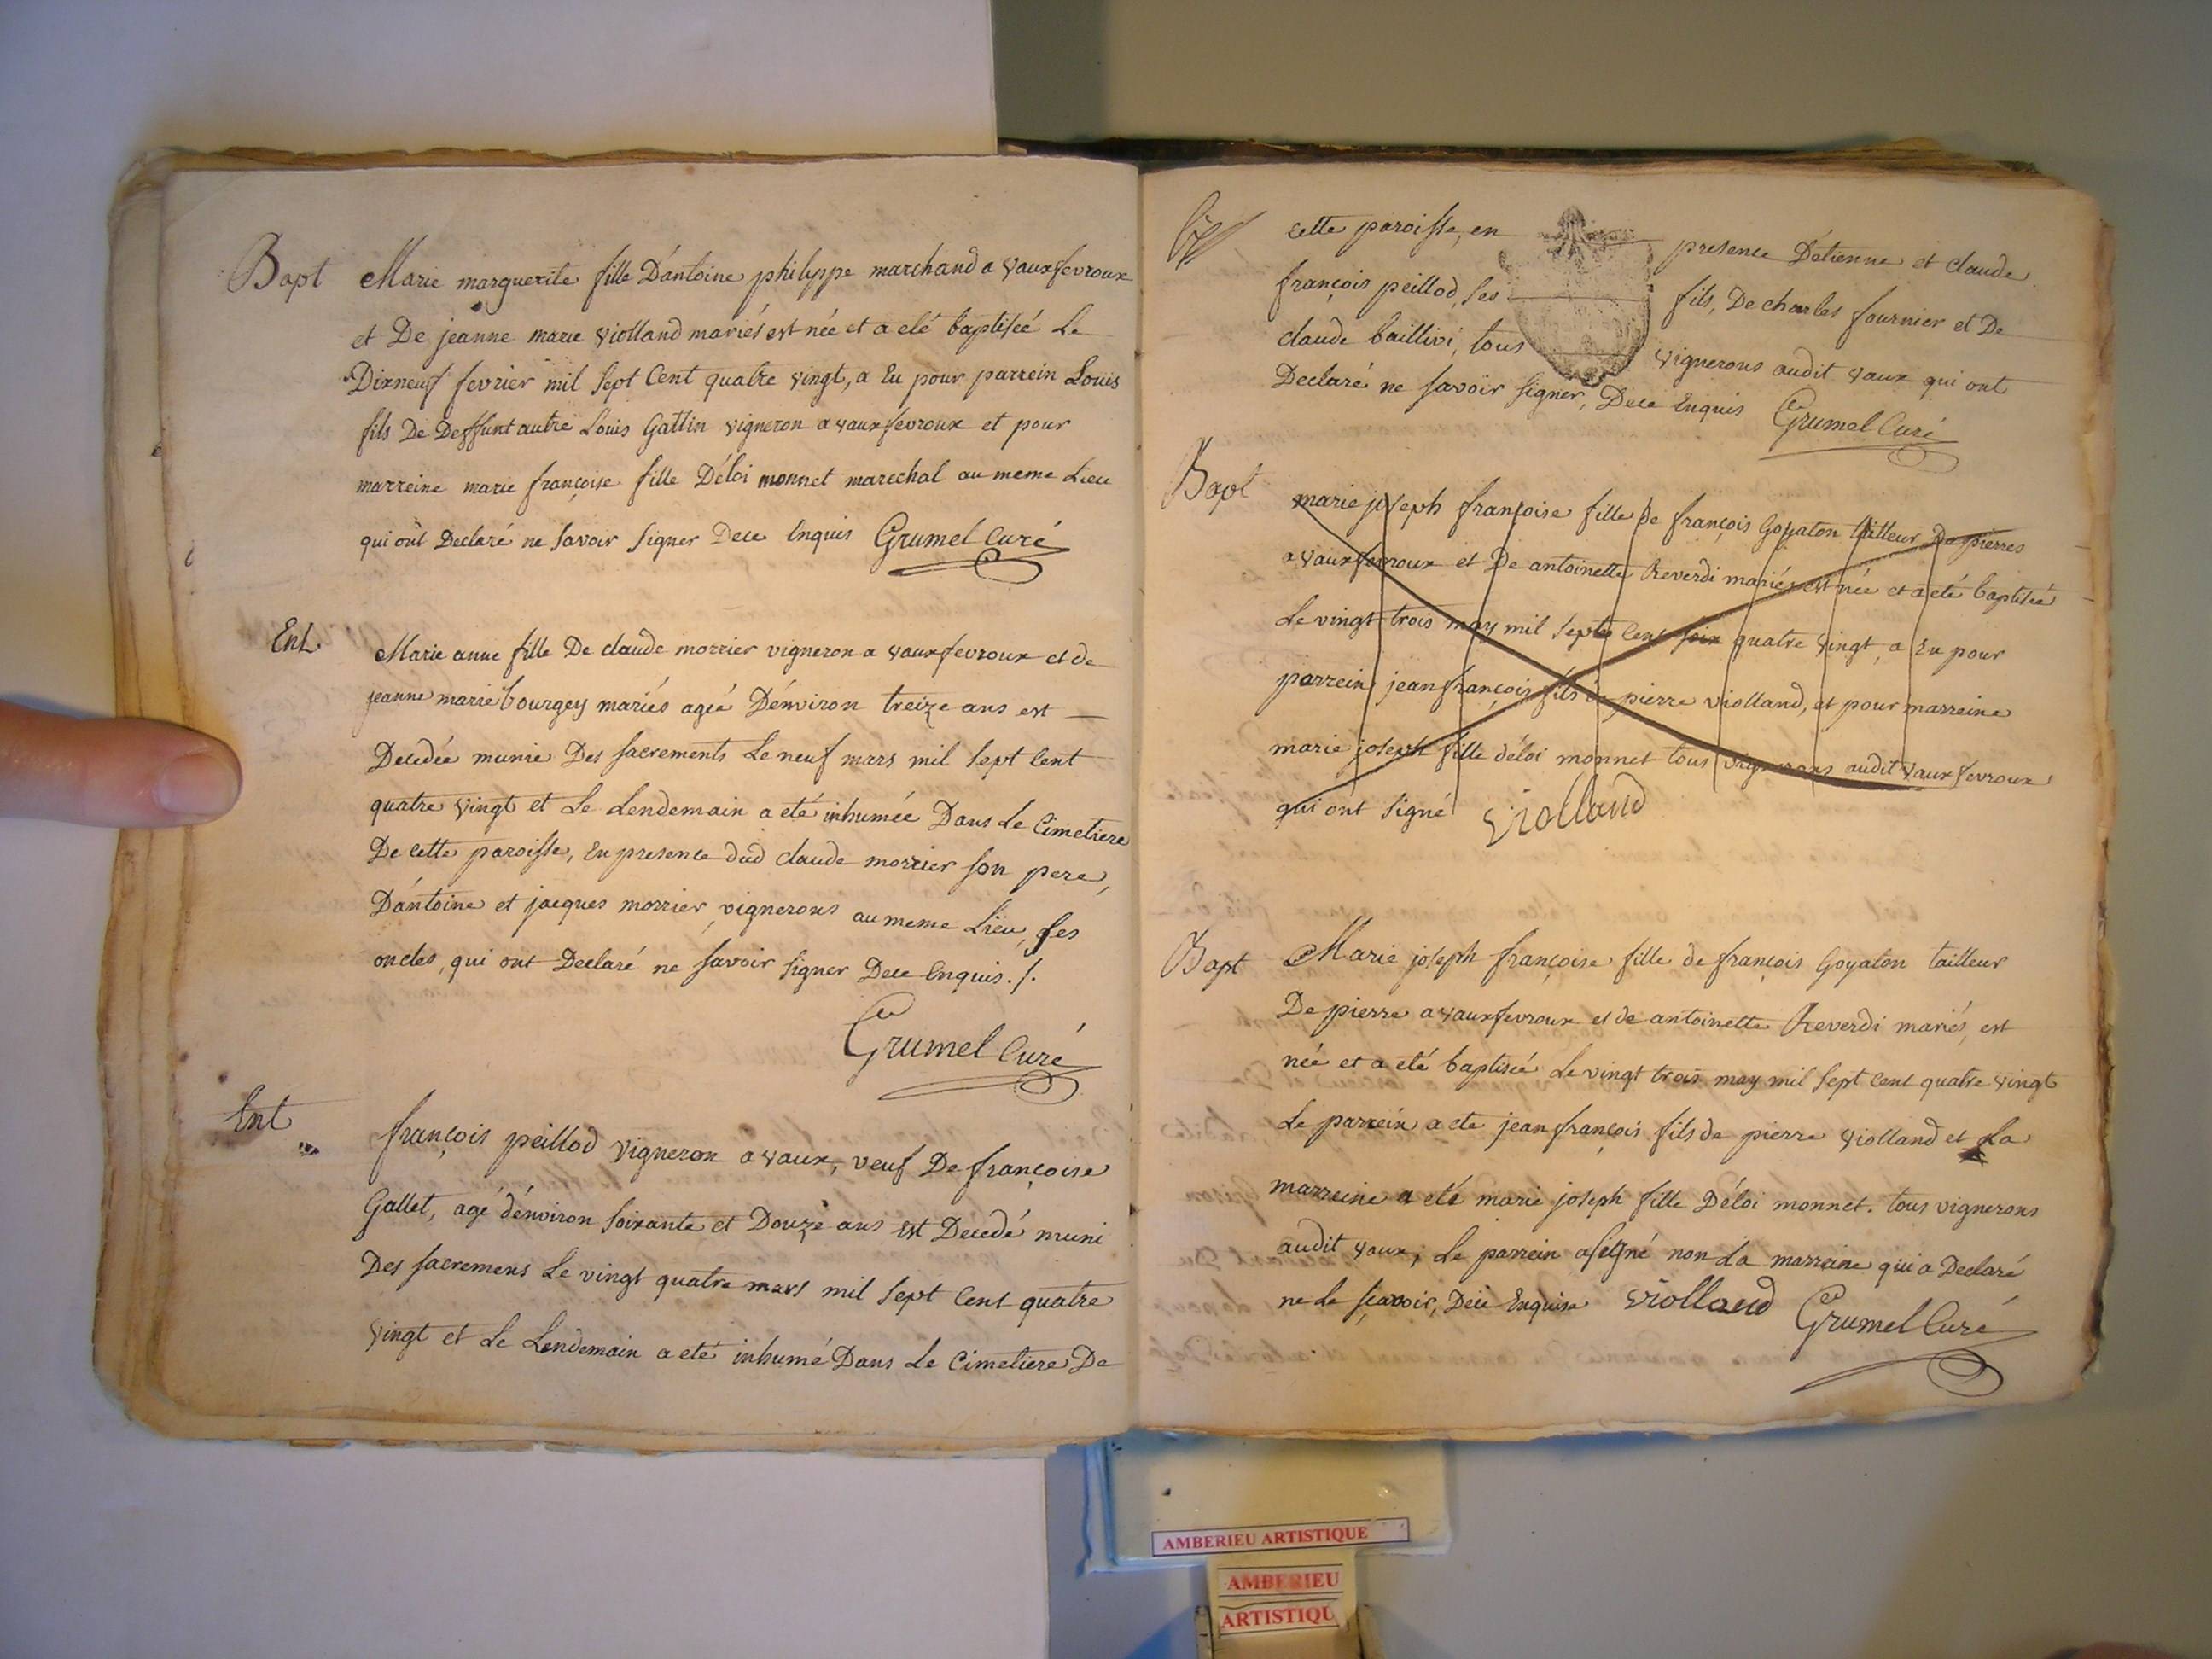 Bapt Marie marguerite fille D'antoine philippe marchand a vauxfevroux
et De jeanne marie violland mariés est née et a eté baptiseé Le
Dixneuf fevrier mil sept Cent quatre vingt, a Eu pour parrein Louis
fils De Deffunt autre Louis Gattin vigneron a vauxfevroux et pour
marreine marie françoise fille D'éloi monnet marechal au meme Lieu
qui ont Declaré ne savoir signer Dece Enquis Grumel Curé
Ent. Marie anne fille De claude morrier vigneron a vauxfevroux et de
jeanne marie bourgey mariés ageé D'énviron treize ans est
Decedée munie Des sacrements Le neuf mars mil sept Cent
quatre vingt et Le Lendemain a eté inhumée Dans Le Cimetiere
De cette paroisse, En presence dud claude morrier son pere,
D'antoine et jacques morrier vignerons au meme Lieu, ses
oncles, qui ont Declaré ne savoir signer Dece Enquis ./.
Grumel Curé
Ent françois peillod vigneron a vaux, veuf De françoise
Gallet, agé d'énviron soixante et Douze ans est Decedé muni
Des sacremens Le vingt quatre mars mil sept Cent quatre
vingt et Le Lendemain a eté inhumé Dans Le Cimetiere De
cette paroisse, en presence D'etienne et claude
françois peillod, ses fils, De charles fournier et De
claude baillivi, tous vignerons audit vaux qui ont
Declaré ne savoir signer, Dece Enquis Grumel Curé
Bapt marie joseph françoise fille De françois Goyaton tailleur De pierres
a vauxfevroux et De antoinette Reverdi mariés est née et a eté baptisée
Le vingt trois may mil sept Cent soix quatre vingt, a Eu pour
parrein jean françois fils de pierre violland, et pour marreine
marie joseph fille d'éloi monnet tous vignerons audit vauxfevroux
qui ont signé violland
Bapt Marie joseph françoise fille de françois Goyaton tailleur
De pierre a vauxfevroux et de antoinette Reverdi mariés, est
née et a eté baptisée Le vingt trois may mil sept cent quatre vingt
Le parrein a ete jean françois fils de pierre violland et La
marreine a eté marie joseph fille D'éloi monnet. tous vignerons
audit vaux, Le parrein a signé non La marreine qui a Declaré
ne Le sçavoir, Dece Enquise violland Grumel Curé
AMBERIEU ARTISTIQUE
AMBERIEU
ARTISTIQU